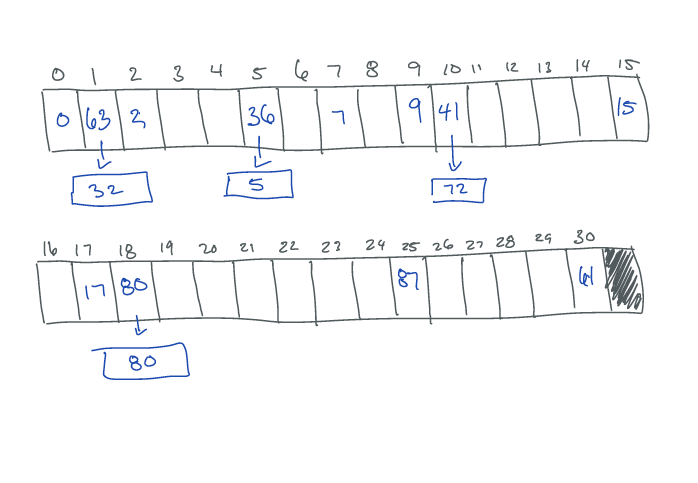 0 1 2 3 4 5 6 7 8 9 10 11 12 13 14 15
0 63 2 36 7 9 41 15
32 5 72
16 17 18 19 20 21 22 23 24 25 26 27 28 29 30
17 80 87 61
80